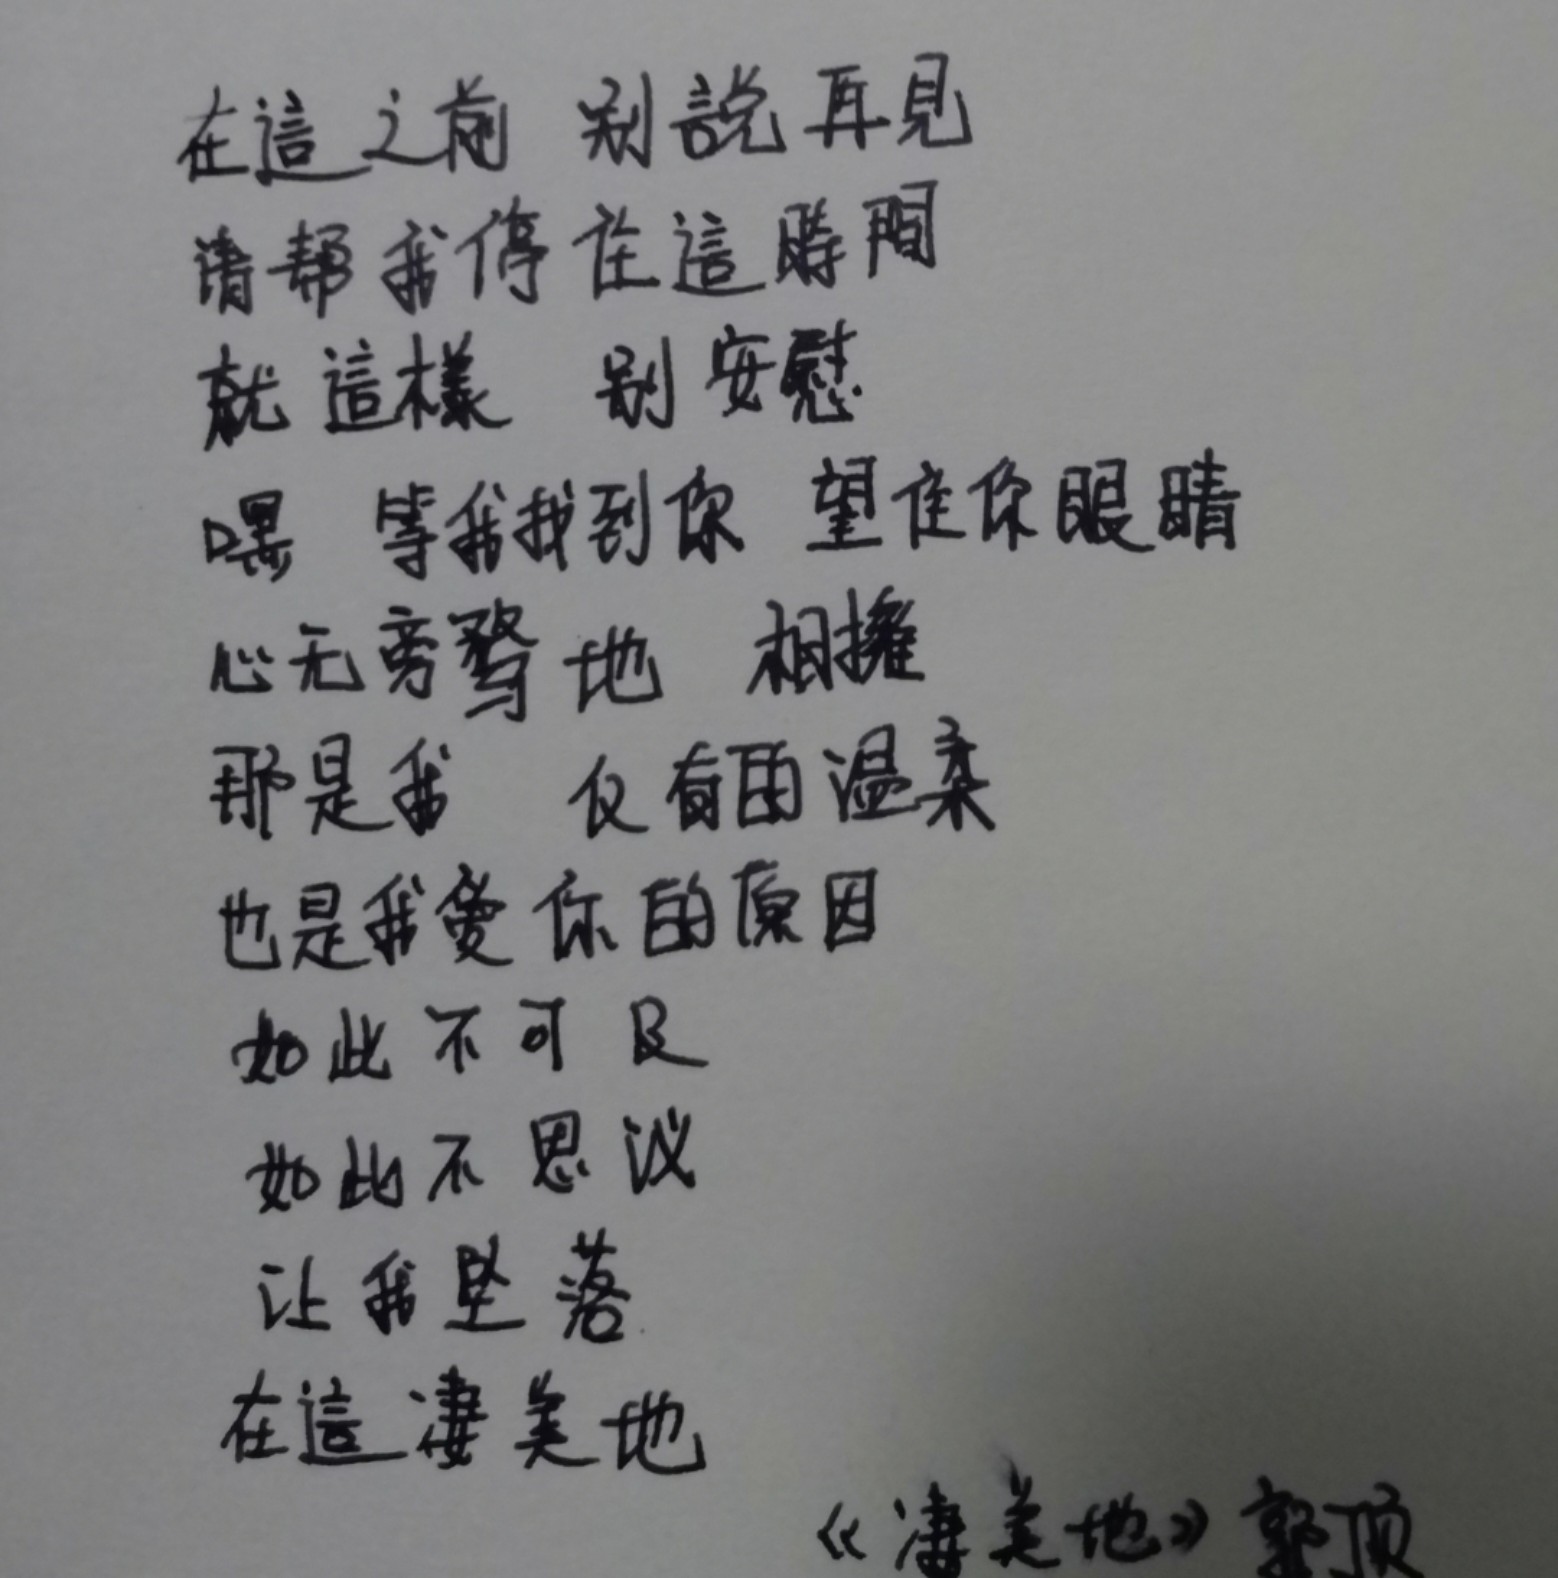 在這之前 别說再見
请帮我停住這時間
就這樣 别安慰
嘿 等我找到你 望住你眼睛
心无旁骛地 相擁
那是我 仅有的温柔
也是我愛你的原因
如此不可及
如此不思议
让我坠落
在這凄美地
《凄美地》郭顶